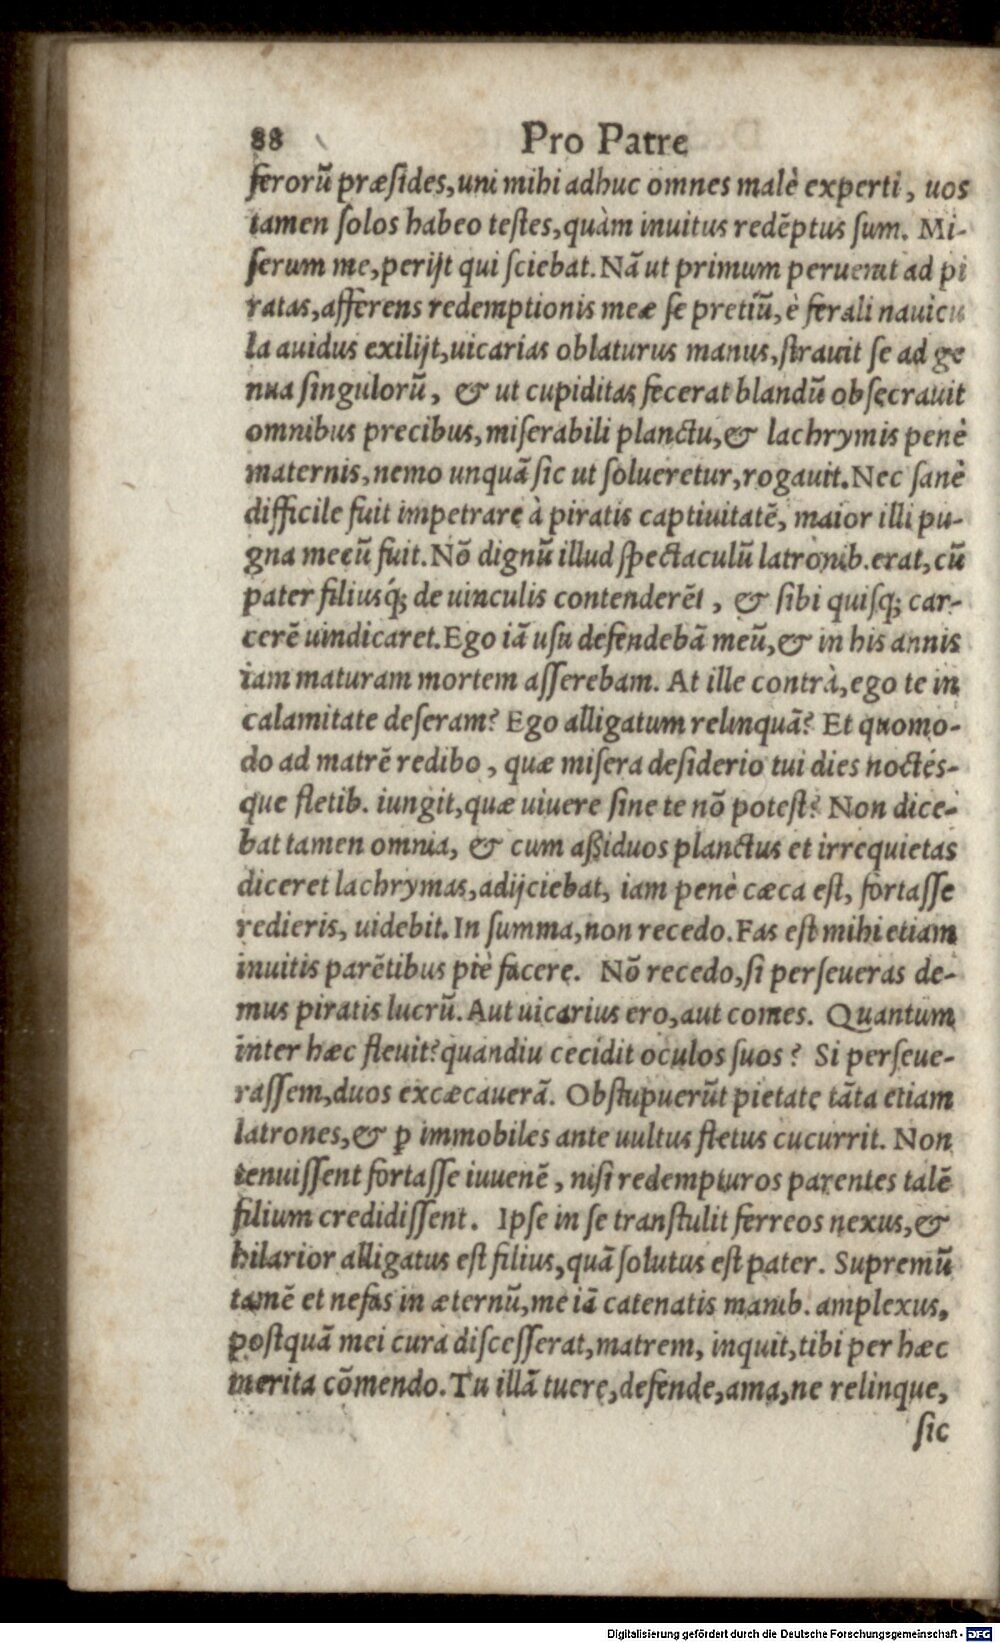 88 Pro Patre
ferorũ præſides, uni mihi adhuc omnes malè experti, uos
tamen ſolos habeo teſtes, quàm inuitus redẽptus ſum. Mi-
ſerum me, perijt qui ſciebat. Nã ut primum peruenit ad pi
ratas, afferens redemptionis meæ ſe pretiũ, è ferali nauicu
la auidus exilijt, uicarias oblaturus manus, ſtrauit ſe ad ge
nua ſingulorũ, & ut cupiditas fecerat blandũ obſecrauit
omnibus precibus, miſerabili planctu, & lachrymis penè
maternis, nemo unquã ſic ut ſolueretur, rogauit. Nec ſanè
difficile fuit impetrare à piratis captiuitatẽ, maior illi pu-
gna mecũ fuit. Nõ dignũ illud ſpectaculũ latronib. erat, cũ
pater filiusq́; de uinculis contenderẽt, & ſibi quiſq; car-
cerẽ uindicaret. Ego iã uſu defendebã meũ, & in his annis
iam maturam mortem aſſerebam. At ille contrà, ego te in
calamitate deſeram? Ego alligatum relinquã? Et quomo-
do ad matrẽ redibo, quæ miſera deſiderio tui dies noctés-
que fletib. iungit, quæ uiuere ſine te nõ poteſt? Non dice-
bat tamen omnia, & cum aßiduos planctus et irrequietas
diceret lachrymas, adijciebat, iam penè cæca eſt, fortaſſe
redieris, uidebit. In ſumma, non recedo. Fas eſt mihi etiam
inuitis parẽtibus piè facere. Nõ recedo, ſi perſeueras de-
mus piratis lucrũ. Aut uicarius ero, aut comes. Quantum
inter hæc fleuit? quandiu cecidit oculos ſuos? Si perſeue-
raſſem, duos excæcauerã. Obſtupuerũt pietate tãta etiam
latrones, & ꝑ immobiles ante uultus fletus cucurrit. Non
tenuiſſent fortaſſe iuuenẽ, niſi redempturos parentes talẽ
filium credidiſſent. Ipſe in ſe tranſtulit ferreos nexus, &
hilarior alligatus eſt filius, quã ſolutus eſt pater. Supremũ
tamẽ et nefas in æternũ, me iã catenatis manib. amplexus,
poſtquã mei cura diſceſſerat, matrem, inquit, tibi per hæc
merita cõmendo. Tu illã tuere, defende, ama, ne relinque,
ſic
Digitalisierung gefördert durch die Deutsche Forschungsgemeinschaft - DFG